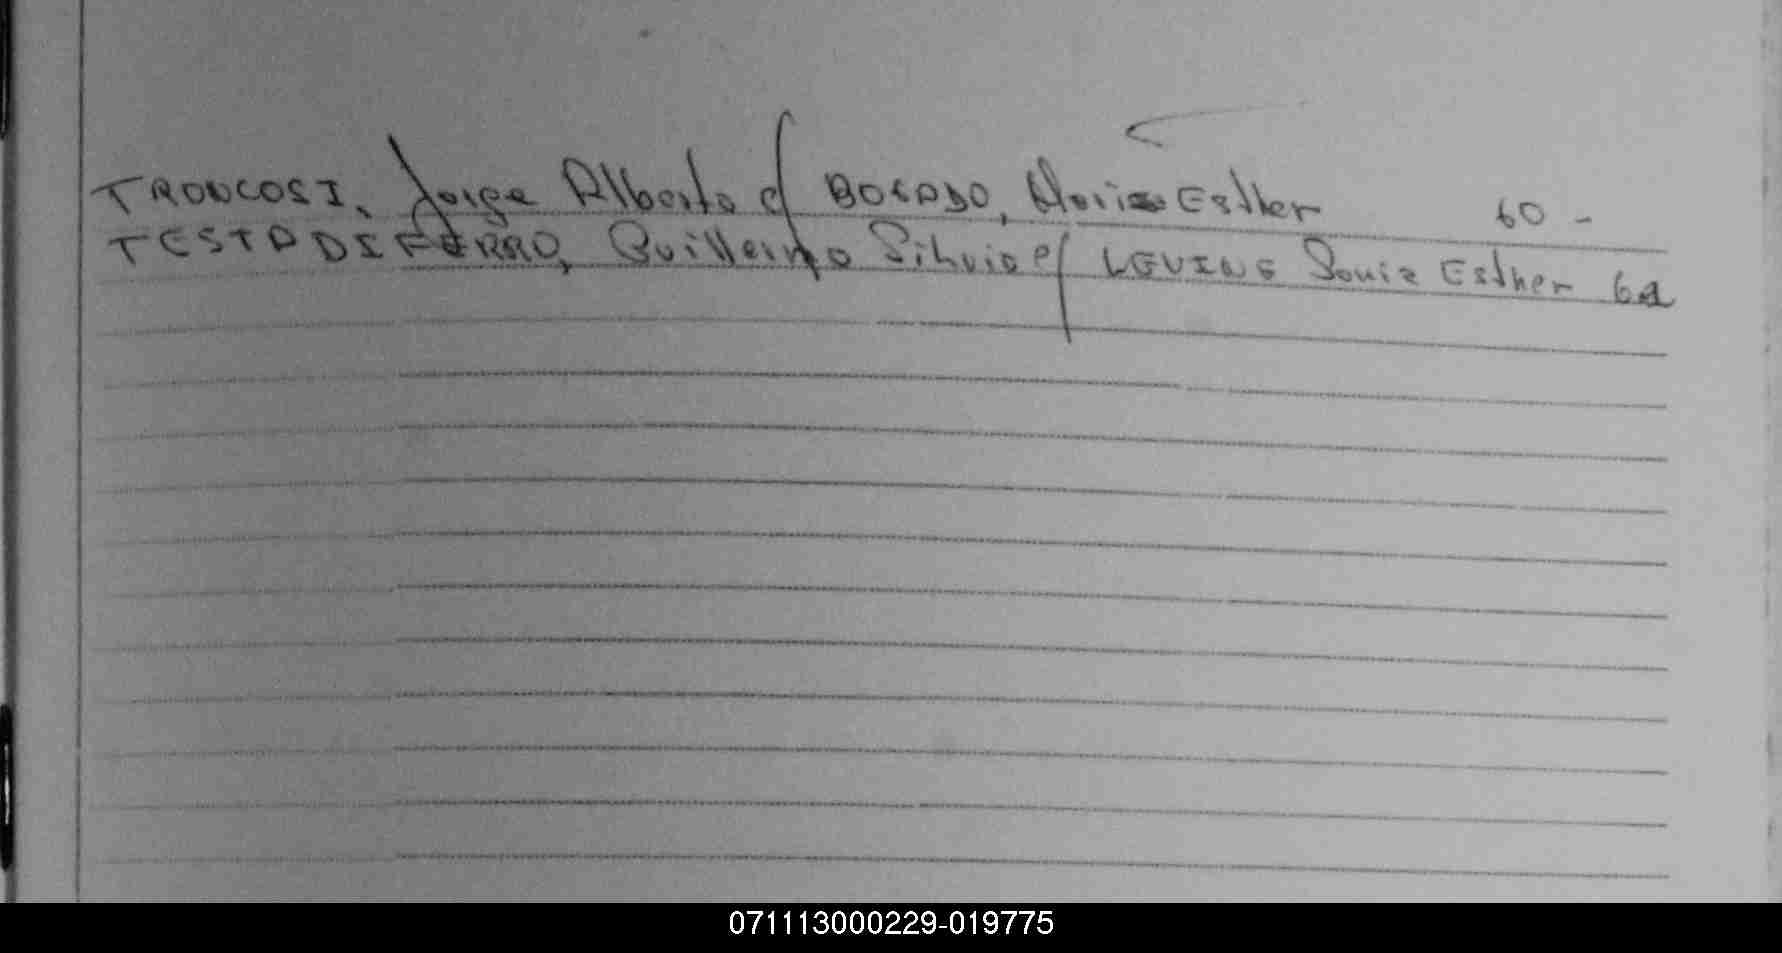 TRONCOSI, Jorge Alberto c/ BOSADO, María Esther 60 -
TESTA DI FERRO, Guillermo Silvio c/ LEVINE Sonia Esther 61
071113000229-019775